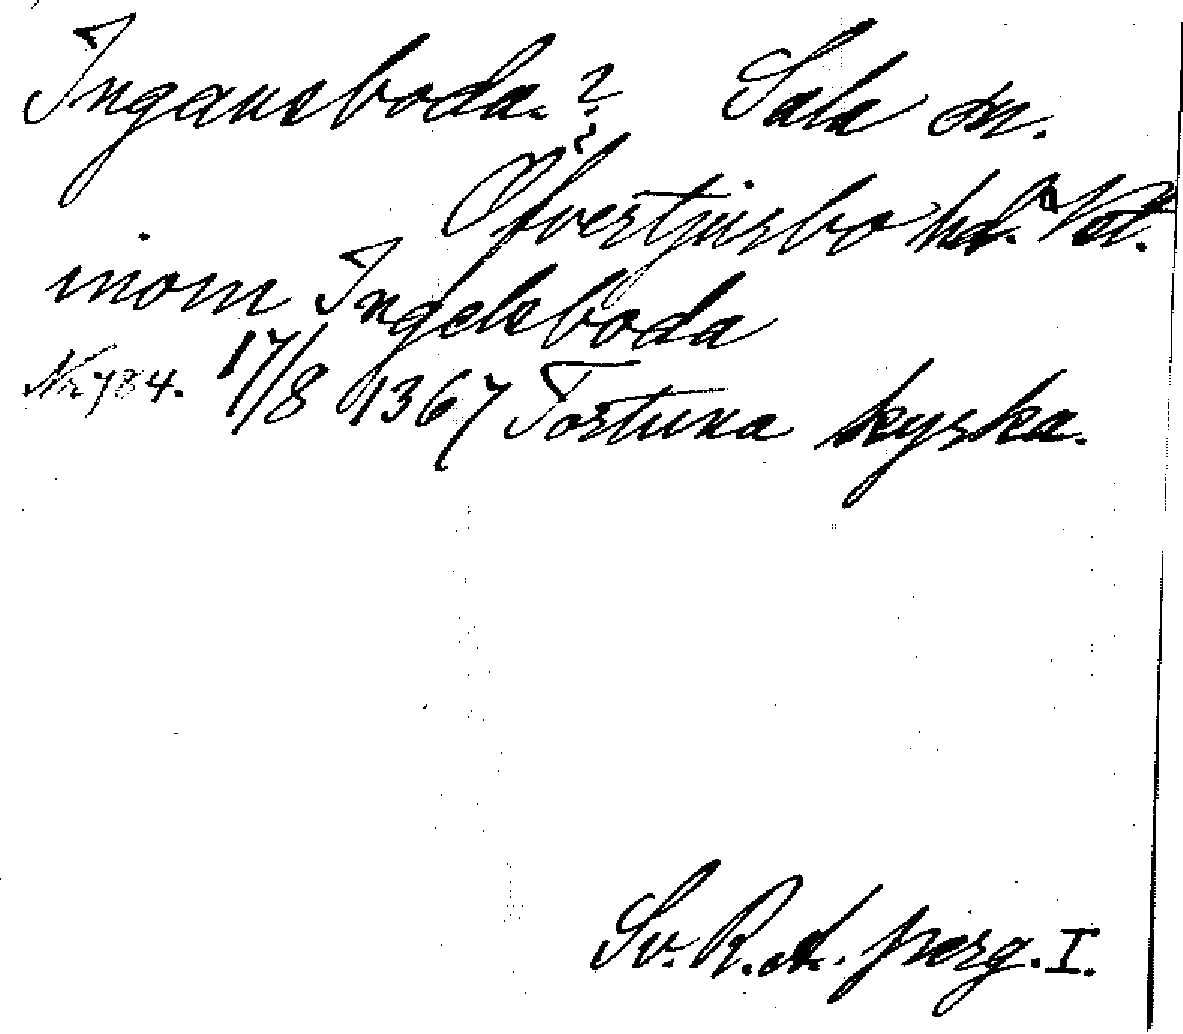 Ingausboda. ? Sala sn.
Öfvertjursbo hd. Vstl.
inom Ingelsboda
No 784. 17/8 1367 Tortuna kyrka.
Sv. R. A. perg. I.